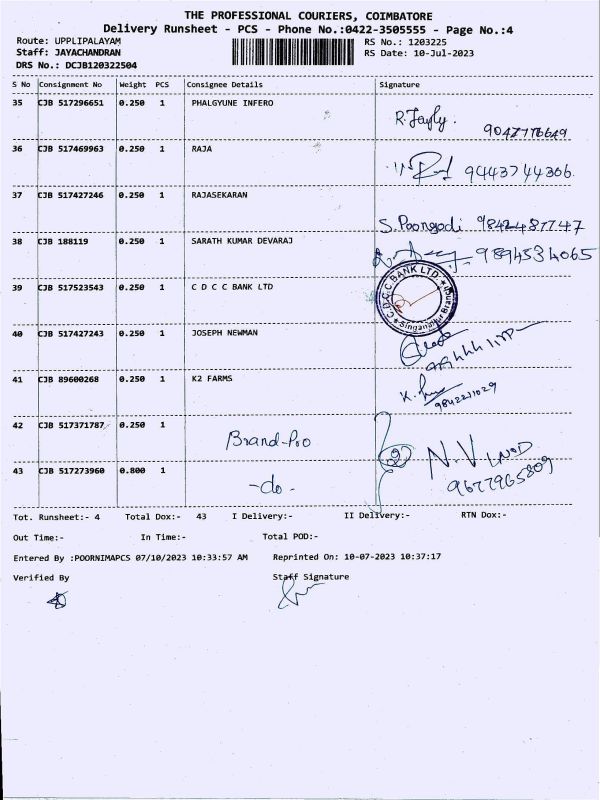 THE PROFESSIONAL COURIERS, COIMBATORE
Delivery Runsheet - PCS - Phone No.:0422-3505555 - Page No.:4
Route: UPPLIPALAYAM RS No.: 1203225
Staff: JAYACHANDRAN RS Date: 10-Jul-2023
DRS No.: DCJB120322504
S No Consignment No Weight PCS Consignee Details Signature
35 CJB 517296651 0.250 1 PHALGYUNE INFERO
36 CJB 517469963 0.250 1 RAJA
9443744306
37 CJB 517427246 0.250 1 RAJASEKARAN
S.Poongodi
38 CJB 188119 0.250 1 SARATH KUMAR DEVARAJ
9894534065
39 CJB 517523543 0.250 1 C D C C BANK LTD
C.D.C.C BANK LTD.
40 CJB 517427243 0.250 1 JOSEPH NEWMAN
41 CJB 89600268 0.250 1 K2 FARMS
42 CJB 517371787 0.250 1 Brand-Pro
N.V
9677965809
43 CJB 517273960 0.800 1 -do-
Tot. Runsheet:- 4 Total Dox:- 43 I Delivery:- II Delivery:- RTN Dox:-
Out Time:- In Time:- Total POD:-
Entered By :POORNIMAPCS 07/10/2023 10:33:57 AM Reprinted On: 10-07-2023 10:37:17
Verified By Staff Signature